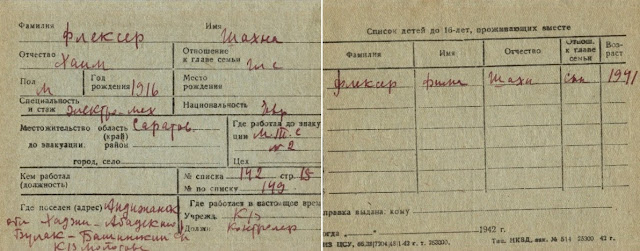 Фамилия Имя
Флексер Шахна
Отчество Отношение к главе семьи
Хаим гл с
Пол Год рождения Место рождения
М 1916
Специальность и стаж Национальность
Электро-мех Евр
Местожительство область (край) Саратов
до эвакуации. район
город, село
Где работал до эваку
ции М.Т.С
№ 2
Цех
Кем работал (должность)
№ списка 142 стр
№ по списку 149
Где поселен (адрес) Андижанск
обл Хаджи-Абадский
Булак-Башинский
Где работает в настоящее врем
Учрежд. К/з
Должн
Список детей до 16-лет, проживающих вместе
Фамилия Имя Отчество Отнош. к главе семьи Воз-раст
Флексер Фима Шахн сын 1941
правка выдана: кому
огда „ “ 1942 г.
Тип. НКВД, зак. № 814 25000 42 г.